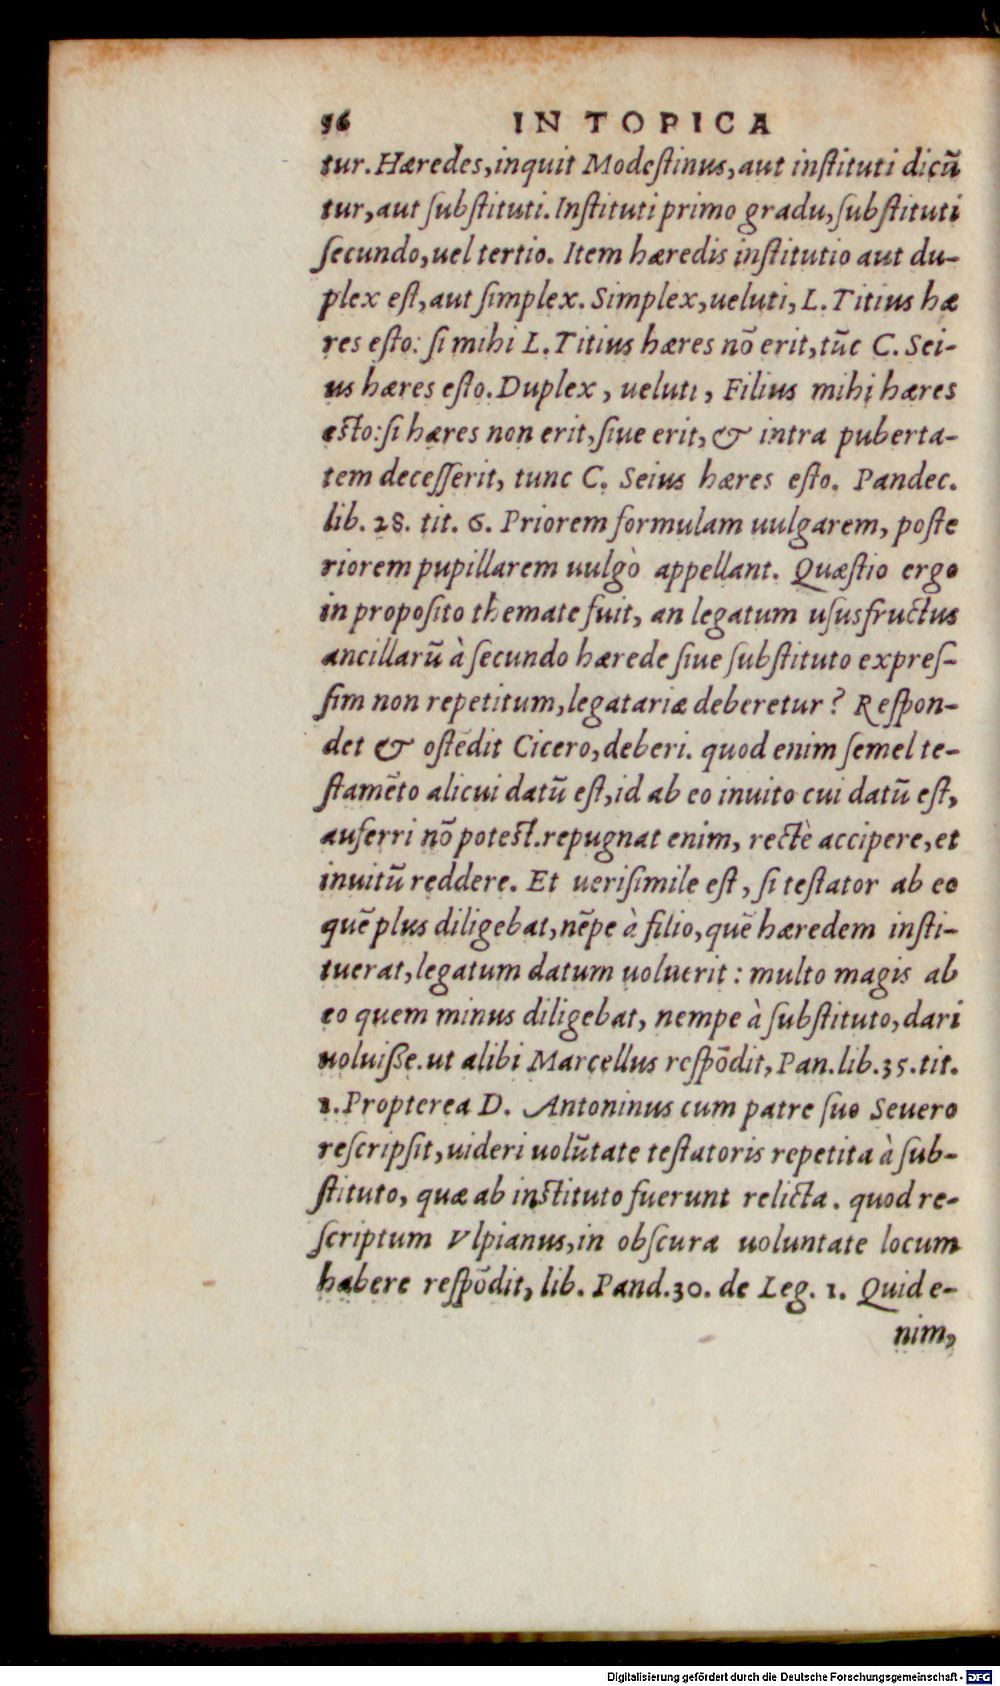 96 IN TOPICA
tur. Hæredes, inquit Modestinus, aut instituti dicũ
tur, aut substituti. Instituti primo gradu, substituti
secundo, uel tertio. Item hæredis institutio aut du-
plex est, aut simplex. Simplex, ueluti, L. Titius hæ
res esto: si mihi L. Titius hæres nõ erit, tũc C. Sei-
us hæres esto. Duplex, ueluti, Filius mihi hæres
esto: si hæres non erit, siue erit, & intra puberta-
tem decesserit, tunc C. Seius hæres esto. Pandec.
lib. 28. tit. 6. Priorem formulam uulgarem, poste
riorem pupillarem uulgò appellant. Quæstio ergo
in proposito themate fuit, an legatum ususfructus
ancillarũ à secundo hærede siue substituto expres-
sim non repetitum, legatariæ deberetur? Respon-
det & ostẽdit Cicero, deberi. quod enim semel te-
stamẽto alicui datũ est, id ab eo inuito cui datũ est,
auferri nõ potest. repugnat enim, rectè accipere, et
inuitũ reddere. Et uerisimile est, si testator ab eo
quẽ plus diligebat, nẽpe à filio, quẽ hæredem insti-
tuerat, legatum datum uoluerit: multo magis ab
eo quem minus diligebat, nempe à substituto, dari
uoluiße. ut alibi Marcellus respõdit, Pan. lib. 35. tit.
1. Propterea D. Antoninus cum patre suo Seuero
rescripsit, uideri uolũtate testatoris repetita à sub-
stituto, quæ ab instituto fuerunt relicta. quod re-
scriptum Vlpianus, in obscura uoluntate locum
habere respõdit, lib. Pand. 30. de Leg. 1. Quid e-
nim,
Digitalisierung gefördert durch die Deutsche Forschungsgemeinschaft - DFG